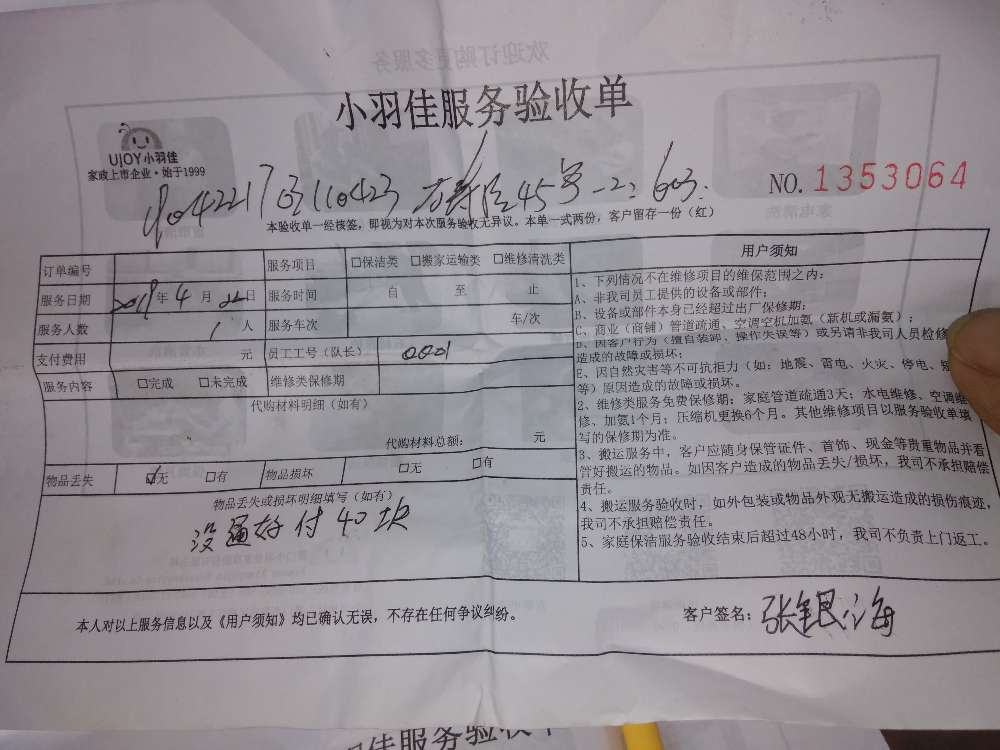 小羽佳服务验收单
UJOY小羽佳
家政上市企业·始于1999
NO. 1353064
45号
603
本验收单一经核签，即视为对本次服务验收无异议。本单一式两份，客户留存一份（红）
订单编号
服务项目 □保洁类 □搬家运输类 □维修清洗类
服务日期 2019年4月22日 服务时间 自 至 止
服务人数 1人 服务车次 车/次
支付费用 元 员工工号（队长） 0001
服务内容 □完成 □未完成 维修类保修期
代购材料明细（如有）
代购材料总额： 元
物品丢失 □无 □有 物品损坏 □无 □有
物品丢失或损坏明细填写（如有）
没通好付40块
用户须知
1、下列情况不在维修项目的维保范围之内：
A、非我司员工提供的设备或部件；
B、设备或部件本身已经超过出厂保修期；
C、商业（商铺）管道疏通、空调空机加氨（新机或漏氨）；
D、因客户行为（擅自装卸、操作失误等）或另请非我司人员检修
造成的故障或损坏；
E、因自然灾害等不可抗拒力（如：地震、雷电、火灾、停电、
等）原因造成的故障或损坏。
2、维修类服务免费保修期：家庭管道疏通3天；水电维修、空调维
修、加氨1个月；压缩机更换6个月。其他维修项目以服务验收单填
写的保修期为准。
3、搬运服务中，客户应随身保管证件、首饰、现金等贵重物品并看
管好搬运的物品。如因客户造成的物品丢失/损坏，我司不承担赔偿
责任。
4、搬运服务验收时，如外包装或物品外观无搬运造成的损伤痕迹，
我司不承担赔偿责任。
5、家庭保洁服务验收结束后超过48小时，我司不负责上门返工。
本人对以上服务信息以及《用户须知》均已确认无误，不存在任何争议纠纷。
客户签名：张银海
欢迎订购更多服务